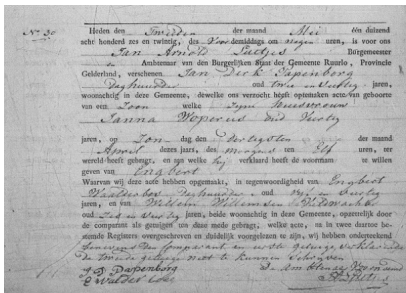 No 30
Heden den Tweeden der maand Mei één duizend
acht honderd zes en twintig, des Voormiddags om negen uren, is voor ons
Jan Arnold Burgemeester
en Ambtenaar van den Burgerlijken Staat der Gemeente Ruurlo, Provincie
Gelderland, verschenen Jan Derk Papenborg
Daghuurder oud jaren,
woonachtig in deze Gemeente, dewelke ons verzocht heeft optemaken acte van geboorte
van een Zoon welke zijne huisvrouw
Janna Woperus oud Veertig
jaren, op Zondag den dertigsten der maand
April dezes jaars, des morgens ten Elf uren, ter
wereld heeft gebragt, en aan welke hij verklaard heeft de voornaam te willen
geven van Engbert
Waarvan wij deze acte hebben opgemaakt, in tegenwoordigheid van Engbert
oud en Veertig
jaren, en van Willem Willemsen Veldwachter
oud Zes en Veertig jaren, beide woonachtig in deze Gemeente, opzettelijk door
de comparant als getuigen ten dezen mede gebragt, welke acte, na in twee daartoe bestemde
Registers overgeschreven en duidelijk voorgelezen te zijn, wij hebben onderteekend
benevens den Comparant en eerste getuige verklarende
de tweede getuige niet te kunnen Schrijven
J D Papenborg de Ambtenaar Voornoemd
E